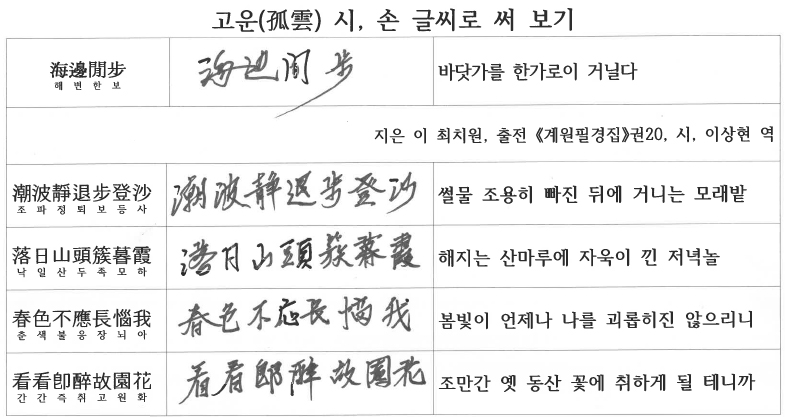 고운(孤雲) 시, 손 글씨로 써 보기
海邊閒步
해변한보
海边閒步
바닷가를 한가로이 거닐다
지은 이 최치원, 출전 《계원필경집》권20, 시, 이상현 역
潮波靜退步登沙
조파정퇴보등사
潮波静退步登沙
썰물 조용히 빠진 뒤에 거니는 모래밭
落日山頭簇暮霞
낙일산두족모하
落日山頭簇暮霞
해지는 산마루에 자욱이 낀 저녁놀
春色不應長惱我
춘색불응장뇌아
春色不应長惱我
봄빛이 언제나 나를 괴롭히진 않으리니
看看卽醉故園花
간간즉취고원화
看看郎醉故園花
조만간 옛 동산 꽃에 취하게 될 테니까